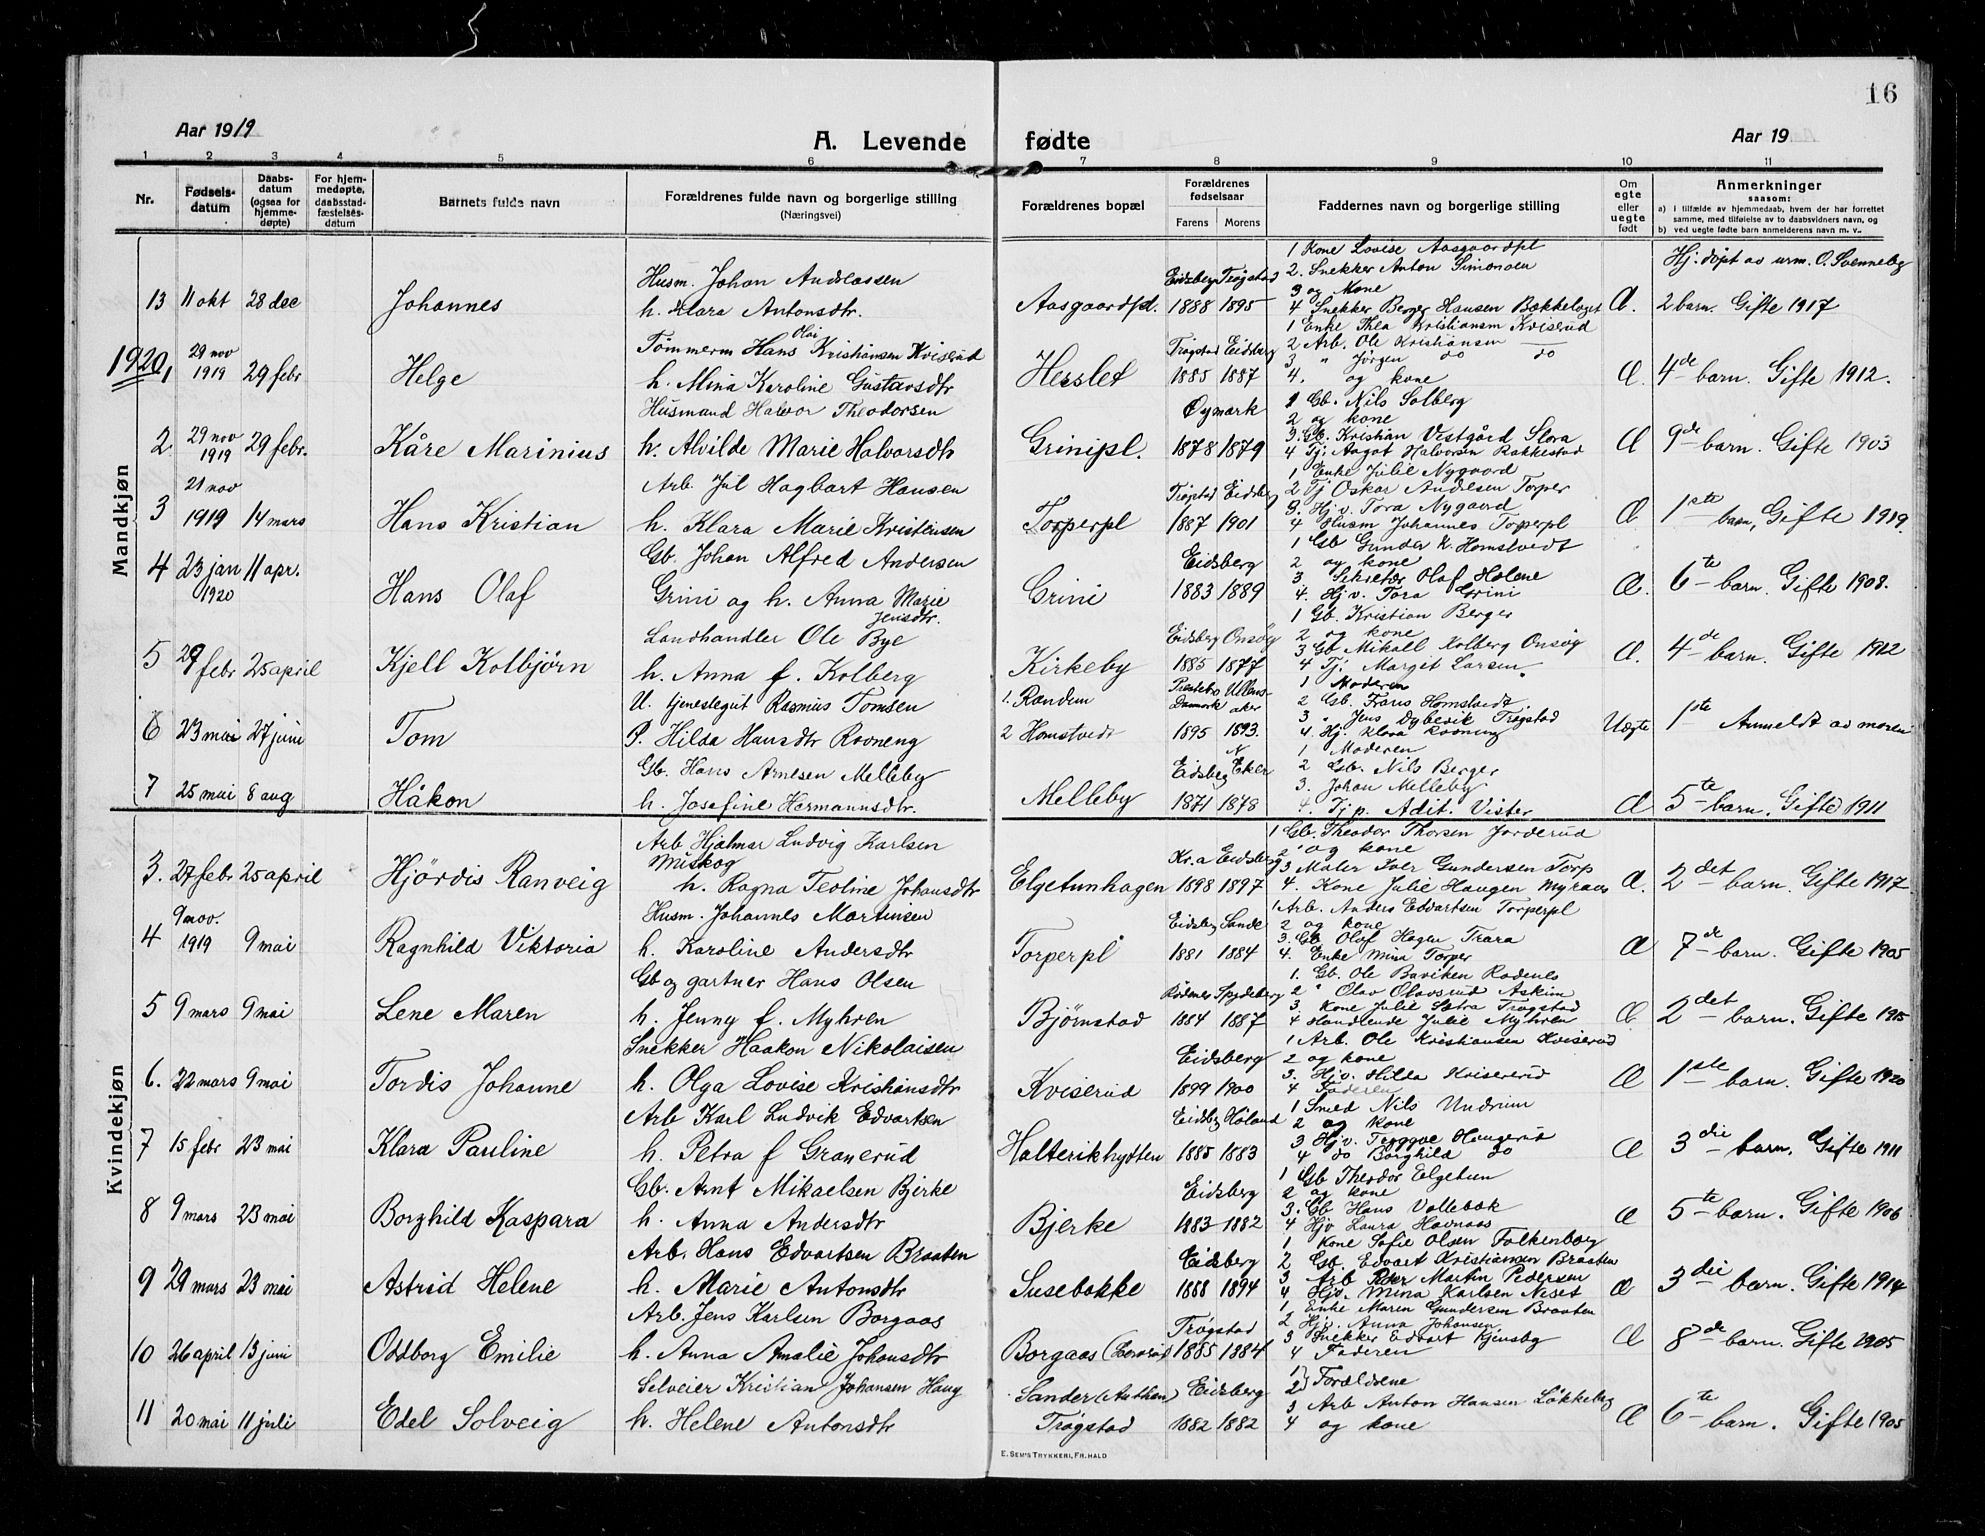 16
Aar 1919
A. Levende fødte
Aar 19
1 2 3 4 5 6 7 8 9 10 11
Nr.
Fødsels-datum
Daabs-datum (ogsaa for hjemme-døpte)
For hjem-medøpte, daabsstad-fæstelses-datum
Barnets fulde navn
Forældrenes fulde navn og borgerlige stilling
(Næringsvei)
Forældrenes bopæl
Forældrenes fødselsaar
Farens Morens
Faddernes navn og borgerlig stilling
Om egte eller uegte født
Anmerkninger
saasom:
a) I tilfælde av hjemmedaab, hvem der har forrettet samme, med tilføielse av to daabsvidners navn, og
b) ved uegte fødte barn anmelderens navn m. v..
Mandkjøn
13 11 okt 28 dec Johannes
Husm. Johan Andreassen
h. Klara Antonsdtr.
Aasgaardpl. Eidsberg Trøgstad 1888 1895
1 Kone Lovise Aasgaardpl
2. Snekker Anton Simonsen
3 og kone
4 Snekker Berger Hansen Bækkelaget
Æ. Hj. døpt av urm. O. Svenneby
2 barn. Gifte 1917
1920, 29 nov 1919 29 febr Helge
Tømmerm Hans Olai Kristiansen Kviserud
h. Mina Karoline Gustavsdtr
Herslet Trøgstad Eidsberg 1885 1887
1 Enke Thea Kristiansen Kviserud
2 Arb. Ole Kristiansen —
3 " Jørgen do do
4. og kone
Æ. 4de barn. Gifte 1912.
2 29 nov 1919 29 febr. Kåre Marinius
Husmand Halvor Theodorsen
h. Alvilde Marie Halvorsdtr
Grinipl. Øymark 1878 1879
1 Gb. Nils Solberg
2 og kone
3. Gb. Kristian Vestgård Slora
4 Tj. Aagot Halvorsen Rakkestad
Æ 9de barn. Gifte 1903
3 21 nov 1919 14 mars Hans Kristian
Arb. Jul Hagbart Hansen
h. Klara Marie Kristensen
Torperpl Trøgstad Eidsberg 1887 1901
1 Enke Julie Nygaard
2 Tj Oskar Andresen Torper
3. Hj v. Tora Nygaard
4 Husm Johannes Torperpl
Æ 1ste barn, Gifte 1919.
4 23 jan 1920 11 apr. Hans Olaf
Gb. Johan Alfred Andersen
Grini og h. Anna Marie Jensdtr.
Grini Eidsberg 1883 1889
1 Gb Gunder K. Homstvedt
2 og kone
3 Sekretær Olaf Holene
4. Hj v. Tora Grini
Æ. 6te barn. Gifte 1908.
5 29 febr 25 april Kjell Kolbjørn
Landhandler Ole Bye
h. Anna f. Kolberg
Kirkeby Eidsberg Onsøy 1885 1877
1 Gb. Kristian Berger
2 og kone
3 Gb Mikael Kolberg Onsøy
4 Tj. Margit Larsen
Æ. 4de barn. Gifte 1912
6 23 mai 27 juni Tom
U. tjenestegut Rasmus Tomsen
P. Hilda Hansdtr Rovneng
1. Randem
2 Homstvedt
Danmark Ullensaker 1895 1893.
1 Moderen
2 Gb. Frans Homstvedt.
3 " Jens Dybevik Trøgstad
4. Hj. Klara
Uægte 1ste Anmeldt av moren
7 25 mai 8 aug Håkon
Gb. Hans Arnesen Melleby
h. Josefine Hermannsdtr.
Melleby Eidsberg N Eker 1871 1878
1 Moderen
2 Gb. Nils Berger
3. Johan Melleby
4. Tj p. Adit. Vister
Æ 5te barn. Gifte 1911
Kvindekjøn
3. 27 febr 25 april Hjørdis Ranveig
Arb Hjalmar Ludvig Karlsen
Miskog
h. Ragna Teoline Johansdtr
Elgetunhagen Kr.a Eidsberg 1898 1897
1 Gb. Theodor Thorsen Jorderud
2 og kone
3 Maler Iver Gundersen Torp
4. Kone Julie Haugen Myraas
Æ. 2det barn. Gifte 1917
4 9 nov. 1919 9 mai Ragnhild Viktoria
Husm. Johannes Martinsen
h. Karoline Andersdtr
Torperpl Eidsberg Sande 1881 1884
1 Arb. Anders Edvartsen Torperpl
2 og kone
3. Gb Olaf Hagen Trara
4. Enke Mina Torper
Æ 7de barn. Gifte 1905
5 9 mars 9 mai Lene Maren
Gb og gartner Hans Olsen
h. Jenny f. Myhren
Bjørnstad Rødenes Spydeberg 1884 1887
1. Gb. Ole Buviken Rødenes
2 " Olav Olavsrud Askim
3. Kone Julie Sætra Trøgstad
4 Handlende Julie Myhren
Æ. 2det barn. Gifte 1915
6. 22 mars 9 mai Tordis Johanne
Snekker Haakon Nikolaisen
h. Olga Lovise Kristiansdtr
Kviserud Eidsberg 1899 1900
1 Arb. Ole Kristiansen Kviserud
2 og kone
3. Hj v. Hilda Kviserud
4 Faderen
Æ 1ste barn. Gifte 1920
7 15 febr 23 mai Klara Pauline
Arb Karl Ludvik Edvartsen
h. Petra f Granerud
Halterikhytten Eidsberg Høland 1885 1883
1 Smed Nils Undrum
2 og kone
3 Hj v. Tryggve Haugerud
4 do Borghild do
Æ 3die barn. Gifte 1911
8 9 mars 23 mai Borghild Kaspara
Gb. Arnt Mikaelsen Bjerke
h. Anna Andersdtr
Bjerke Eidsberg 1883 1882
1 Gb Theodor Elgetun
2 og kone
3. Gb Hans Vollebæk
4 Hjv Laura Havnaas
Æ 5te barn. Gifte 1906
9 29 mars 23 mai Astrid Helene
Arb. Hans Edvartsen Braaten
h. Marie Antonsdtr
Susebakke Eidsberg 1888 1894
1 Kone Sofie Olsen Falkenborg
2 Gb. Edvart Kristiansen Braaten
3 Arb Martin Pedersen
4 Hjv. Mina Karlsen Neset
Æ 3die barn. Gifte 1914
10 26 april 13 juni Oddborg Emilie
Arb. Jens Karlsen Borgaas
h. Anna Amalie Johansdtr
Borgaas Trøgstad 1885 1884
1 Enke Maren Gundersen Braaten
2 Hjv. Anna Johansen
3 Snekker Edvart
4 Faderen
Æ 8de barn. Gifte 1905
11 20 mai 11 juli Edel Solveig
Selveier Kristian Johansen Haug
h. Helene Antonsdtr
Sander
Trøgstad Eidsberg 1882 1882
1) 2) Forældrene
3 Arb Anton Hansen Løkkeberg
4 og kone
Æ 6te barn. Gifte 1905
E. SEM'S TRYKKERI, FR.HALD